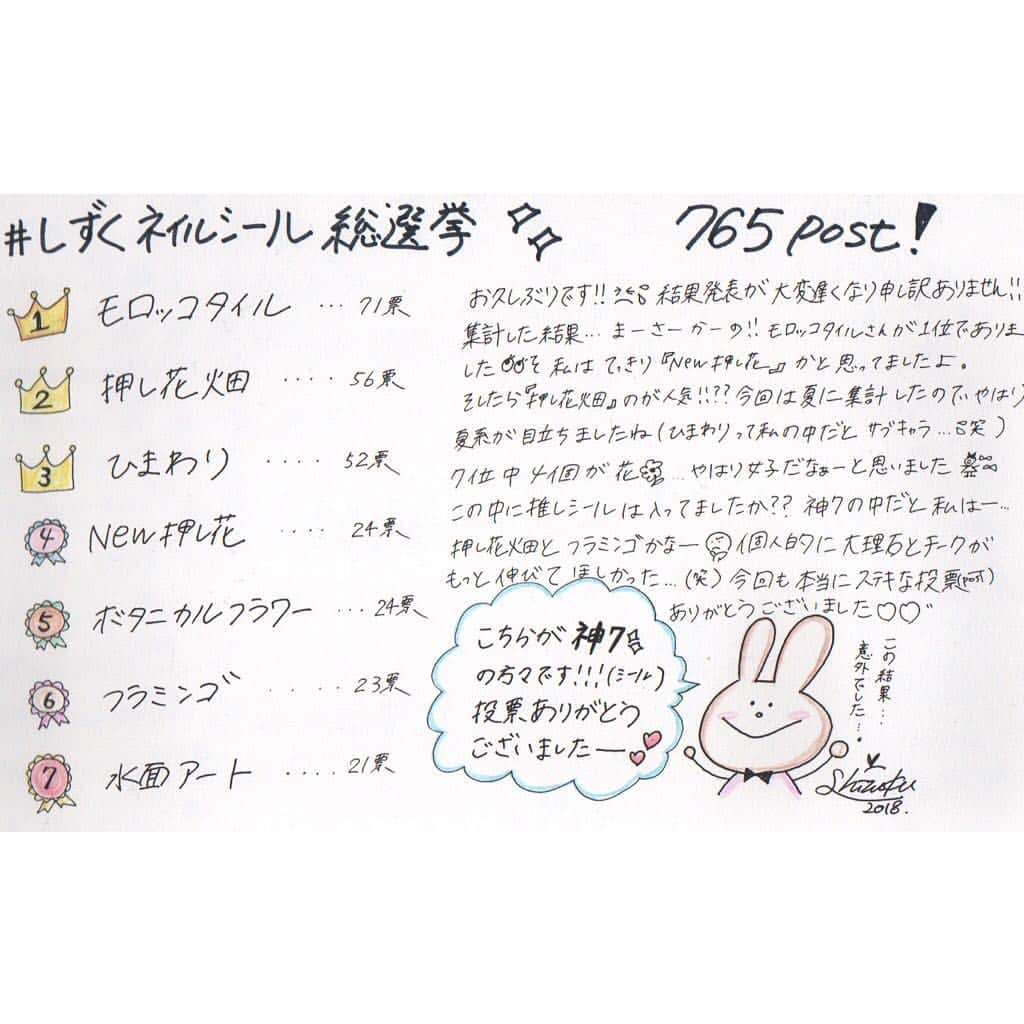 #しずくネイルシール総選挙
765 post!
1 モロッコタイル … 71票
2 押し花畑 ‥‥ 56票
3 ひまわり ‥‥ 52票
4 New押し花 ‥‥ 24票
5 ボタニカルフラワー … 24票
6 フラミンゴ ‥‥ 23票
7 水面アート ‥‥ 21票
お久しぶりです!! 結果発表が大変遅くなり申し訳ありません!!
集計した結果… まーさーかーの!! モロッコタイルさんが1位でありま
した 私はてっきり『New押し花』かと思ってましたよ。
そしたら『押し花畑』のが人気!!?? 今回は夏に集計したので、やはり
夏系が目立ちましたね(ひまわりって私の中だとサブキャラ…笑)
7位中4個が花…やはり女子だなぁーと思いました
この中に推しシールは入ってましたか?? 神7の中だと私はー…
押し花畑とフラミンゴかなー 個人的に大理石とチークが
もっと伸びてほしかった…(笑) 今回も本当にステキな投票(post)
ありがとうございました♡♡
こちらが神7
の方々です!!!(シール)
投票ありがとう
ございましたー
この結果…
意外でした…。
Shizuku
2018.